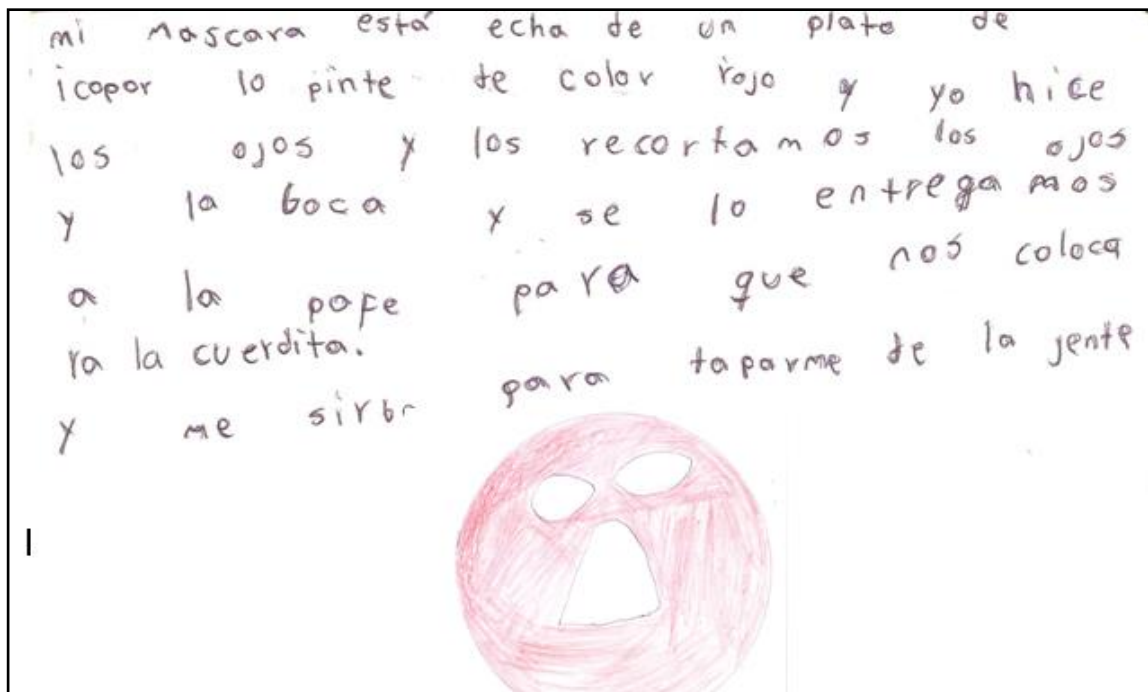 mi mascara está echa de un plato de
icopor lo pinte de color rojo y yo hice
los ojos y los recortamos los ojos
y la boca y se lo entregamos
a la pofe para que nos coloca
ra la cuerdita.
y me sirbe para taparme de la jente